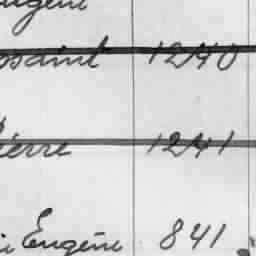 Eugène
osaint 1240
Pierre 1241
Eugène 841